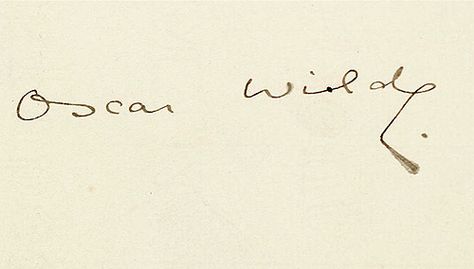 Oscar Wilde